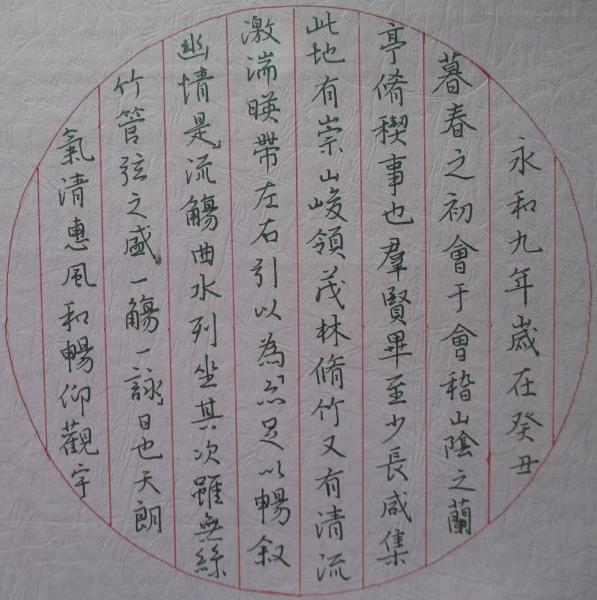 永和九年歲在癸丑
暮春之初會于會稽山陰之蘭
亭脩稧事也羣賢畢至少長咸集
此地有崇山峻領茂林脩竹又有清流
激湍暎帶左右引以為足以暢叙
幽情是流觴曲水列坐其次雖無絲
竹管弦之盛一觴一詠日也天朗
氣清惠風和暢仰觀宇